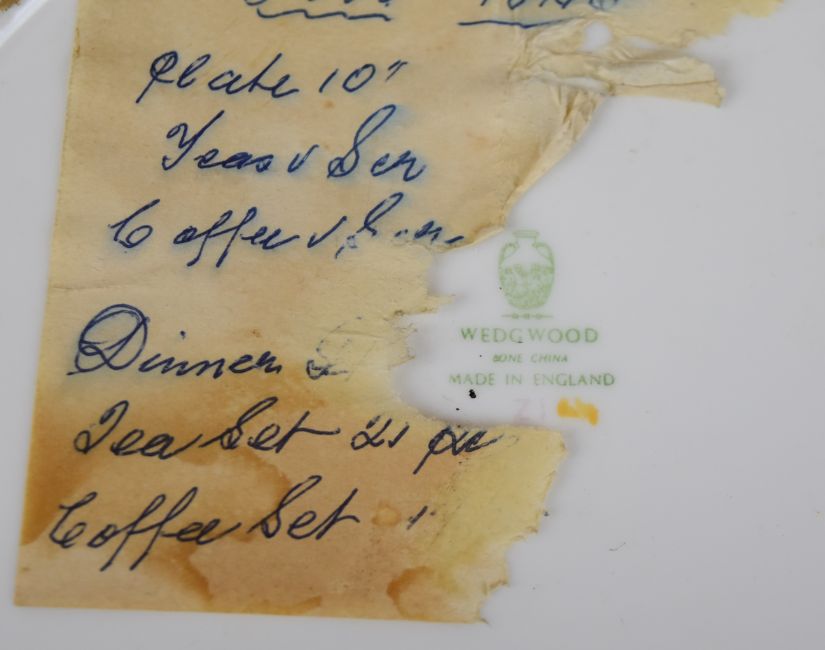 Plate 10"
Teas v Scr
Coffee v S
Dinner
Tea Set 21 pce
Coffee Set 1
WEDGWOOD
BONE CHINA
MADE IN ENGLAND